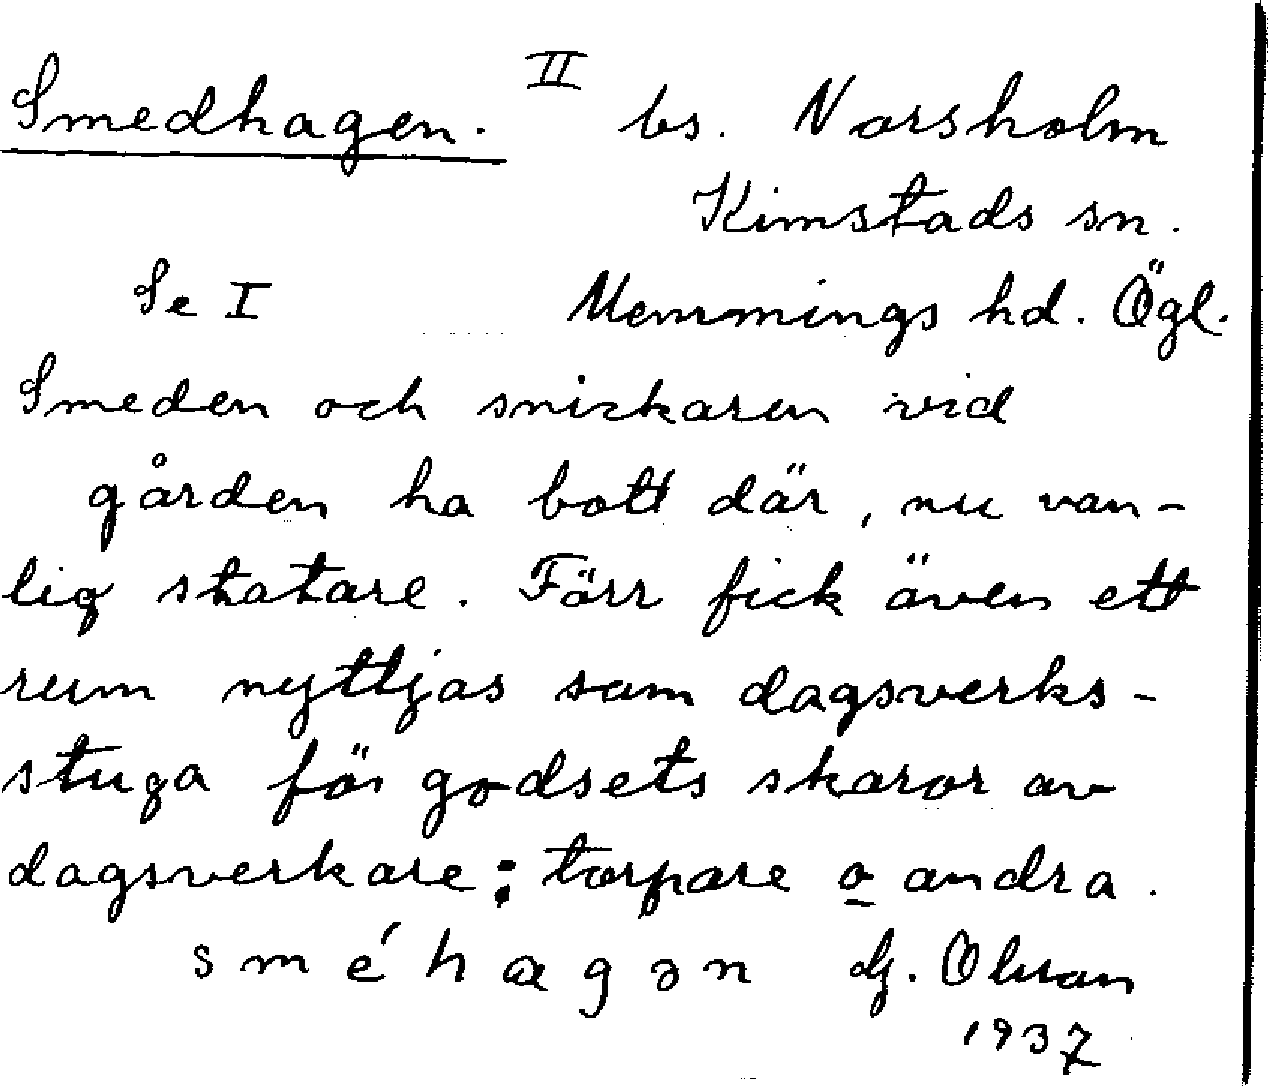 Smedhagen. II bs. Norsholm
Kimstads sn.
Se I Memmings hd. Ögl.
Smeden och snickaren vid
gården ha bott där, nu van-
lig statare. Förr fick även ett
rum nyttjas som dagsverks-
stuga för godsets skaror av
dagsverkare; torpare o andra.
sméhagən G. Olsson
1937